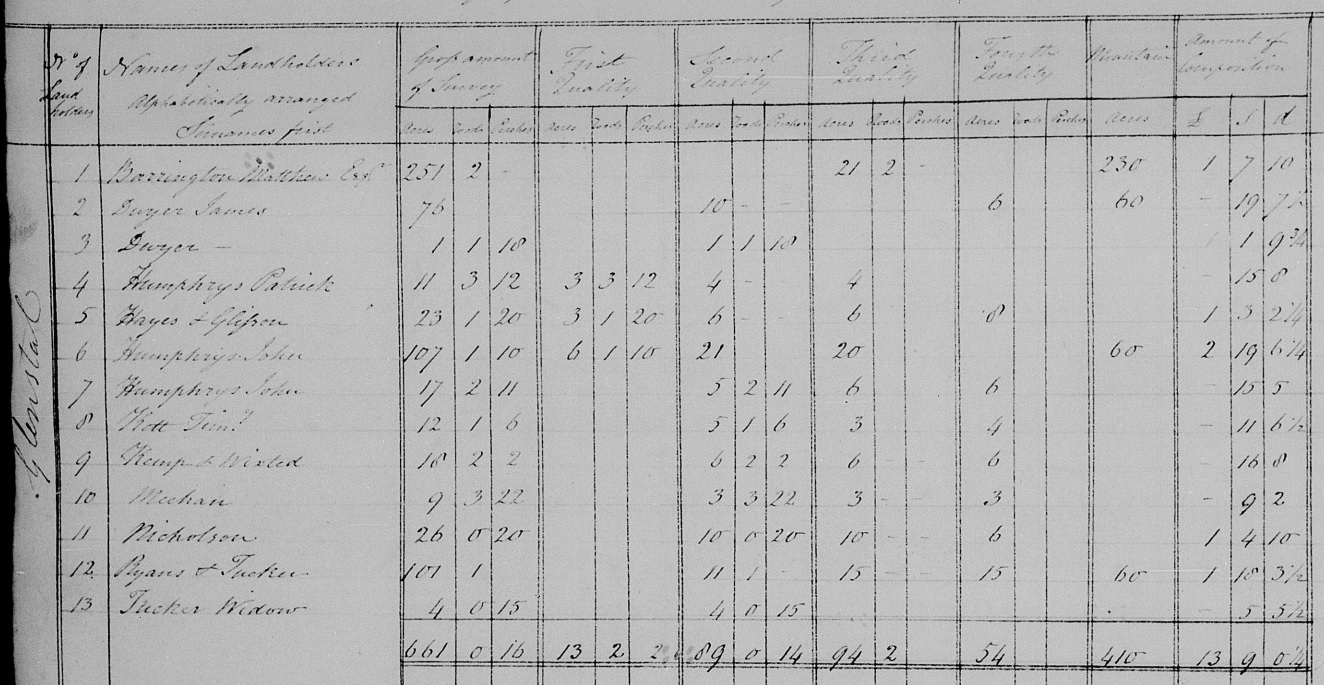 Nº of Land holders
Names of Landholders Alphabetically arranged Sirnames first
Gross amount of Survey
First Quality
Second Quality
Third Quality
Fourth Quality
Mountain
Amount of Composition
Acres Roods Perches Acres Roods Perches Acres Roods Perches Acres Roods Perches Acres Roods Perches Acres £ S d
Glenstal
1 Barrington Matthew Esqr 251 2 - 21 2 - 230 1 7 10
2 Dwyer James 76 10 - - 6 60 - 19 7 1/2
3 Dwyer — 1 1 18 1 1 18 1 9 3/4
4 Humphrys Patrick 11 3 12 3 3 12 4 - - 4 - 15 8
5 Hayes & Glisson 23 1 20 3 1 20 6 - - 6 8 1 3 2 1/4
6 Humphrys John 107 1 10 6 1 10 21 20 60 2 19 6 1/4
7 Humphrys John 17 2 11 5 2 11 6 6 - 15 5
8 Kott Timy 12 1 6 5 1 6 3 4 - 11 6 1/2
9 Kemp & Wixted 18 2 2 6 2 2 6 - - 6 16 8
10 Meehan 9 3 22 3 3 22 3 - - 3 - 9 2
11 Nicholson 26 0 20 10 0 20 10 - - 6 1 4 10
12 Ryans & Tucker 101 1 11 1 - 15 - - 15 60 1 18 3 1/2
13 Tucker Widow 4 0 15 4 0 15 - 5 5 1/2
661 0 16 13 2 2 89 0 14 94 2 54 410 13 9 0 1/4